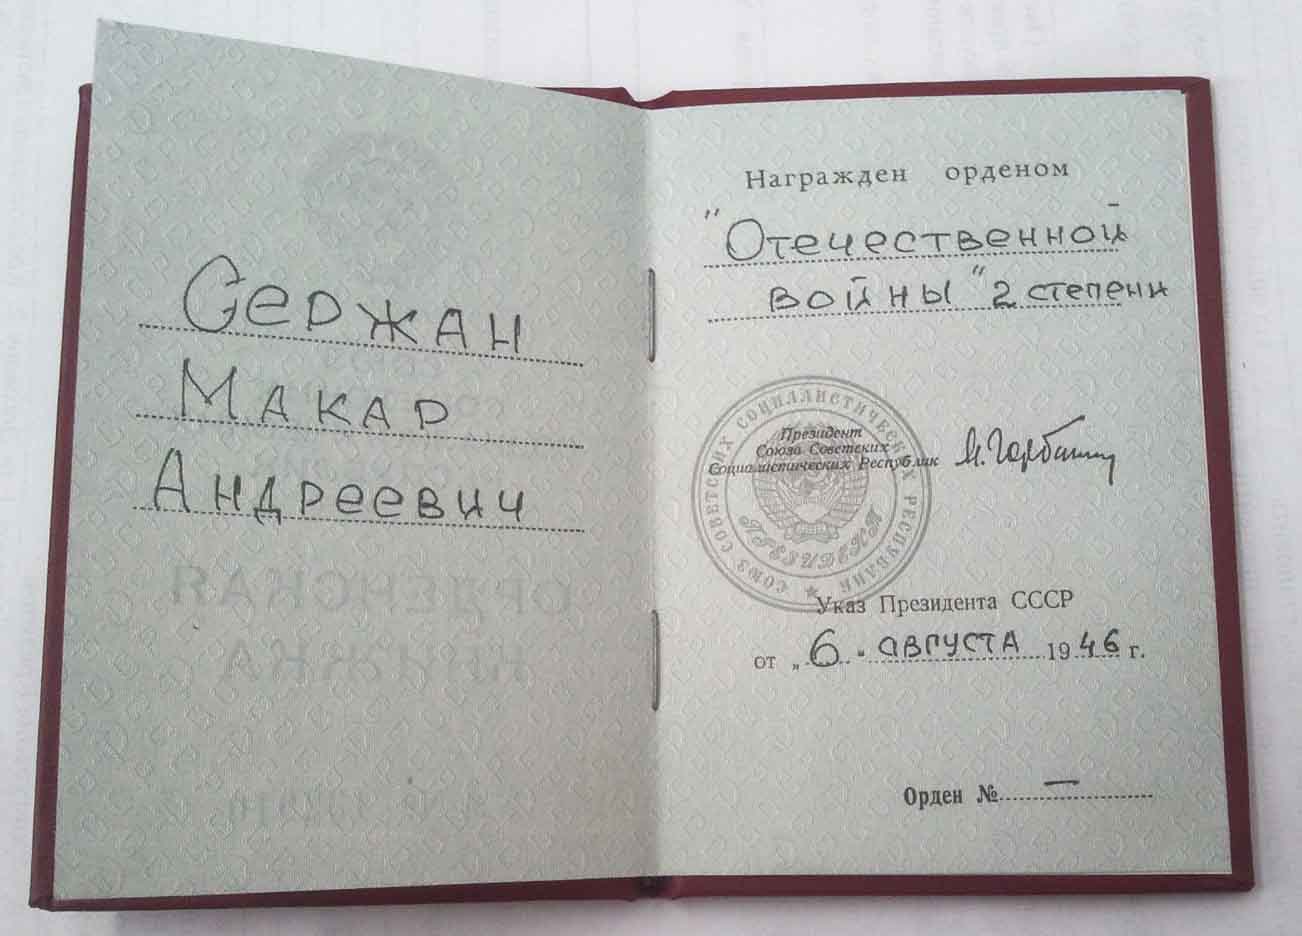 Сержан
Макар
Андреевич
Награжден орденом
"Отечественной
войны" 2 степени
СОЮЗ СОВЕТСКИХ СОЦИАЛИСТИЧЕСКИХ РЕСПУБЛИК
Президент
Союза Советских
Социалистических Республик
М. Горбачев
ПРЕЗИДЕНТ
Указ Президента СССР
от „6" августа 1946 г.
Орден № —
ОРДЕНСКАЯ
КНИЖКА